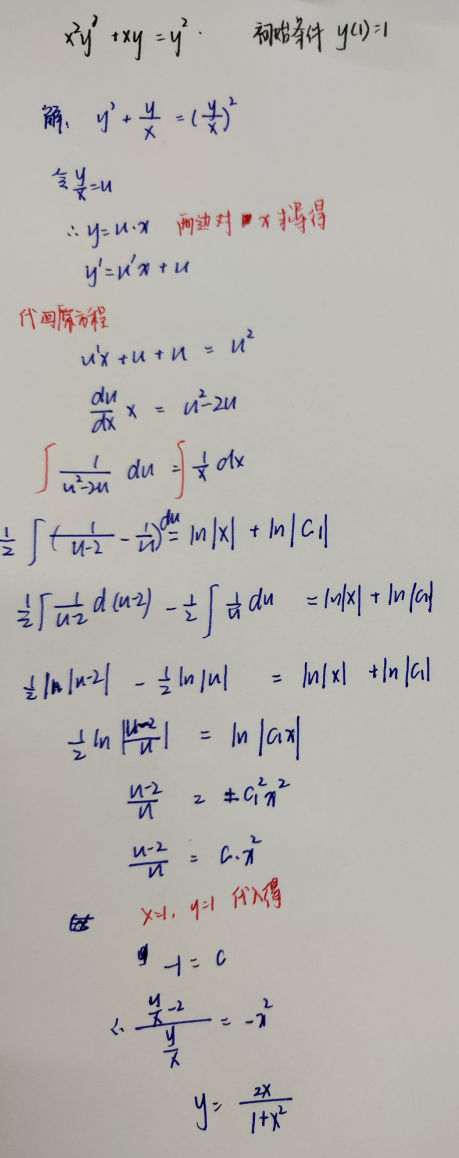 x²y' + xy = y². 初始条件 y(1)=1
解: y' + y/x = (y/x)²
令 y/x = u
∴ y = u·x 两边对 x 求导得
y' = u'x + u
代回原方程
u'x + u + u = u²
du/dx x = u² - 2u
∫ 1/(u²-2u) du = ∫ 1/x dx
1/2 ∫ (1/(u-2) - 1/u) du = ln|x| + ln|C₁|
1/2 ∫ 1/(u-2) d(u-2) - 1/2 ∫ 1/u du = ln|x| + ln|C₁|
1/2 ln|u-2| - 1/2 ln|u| = ln|x| + ln|C₁|
1/2 ln |(u-2)/u| = ln |C₁x|
(u-2)/u = ± C₁²x²
(u-2)/u = C·x²
x=1, y=1 代入得
-1 = C
∴ (y/x - 2)/(y/x) = -x²
y = 2x/(1+x²)